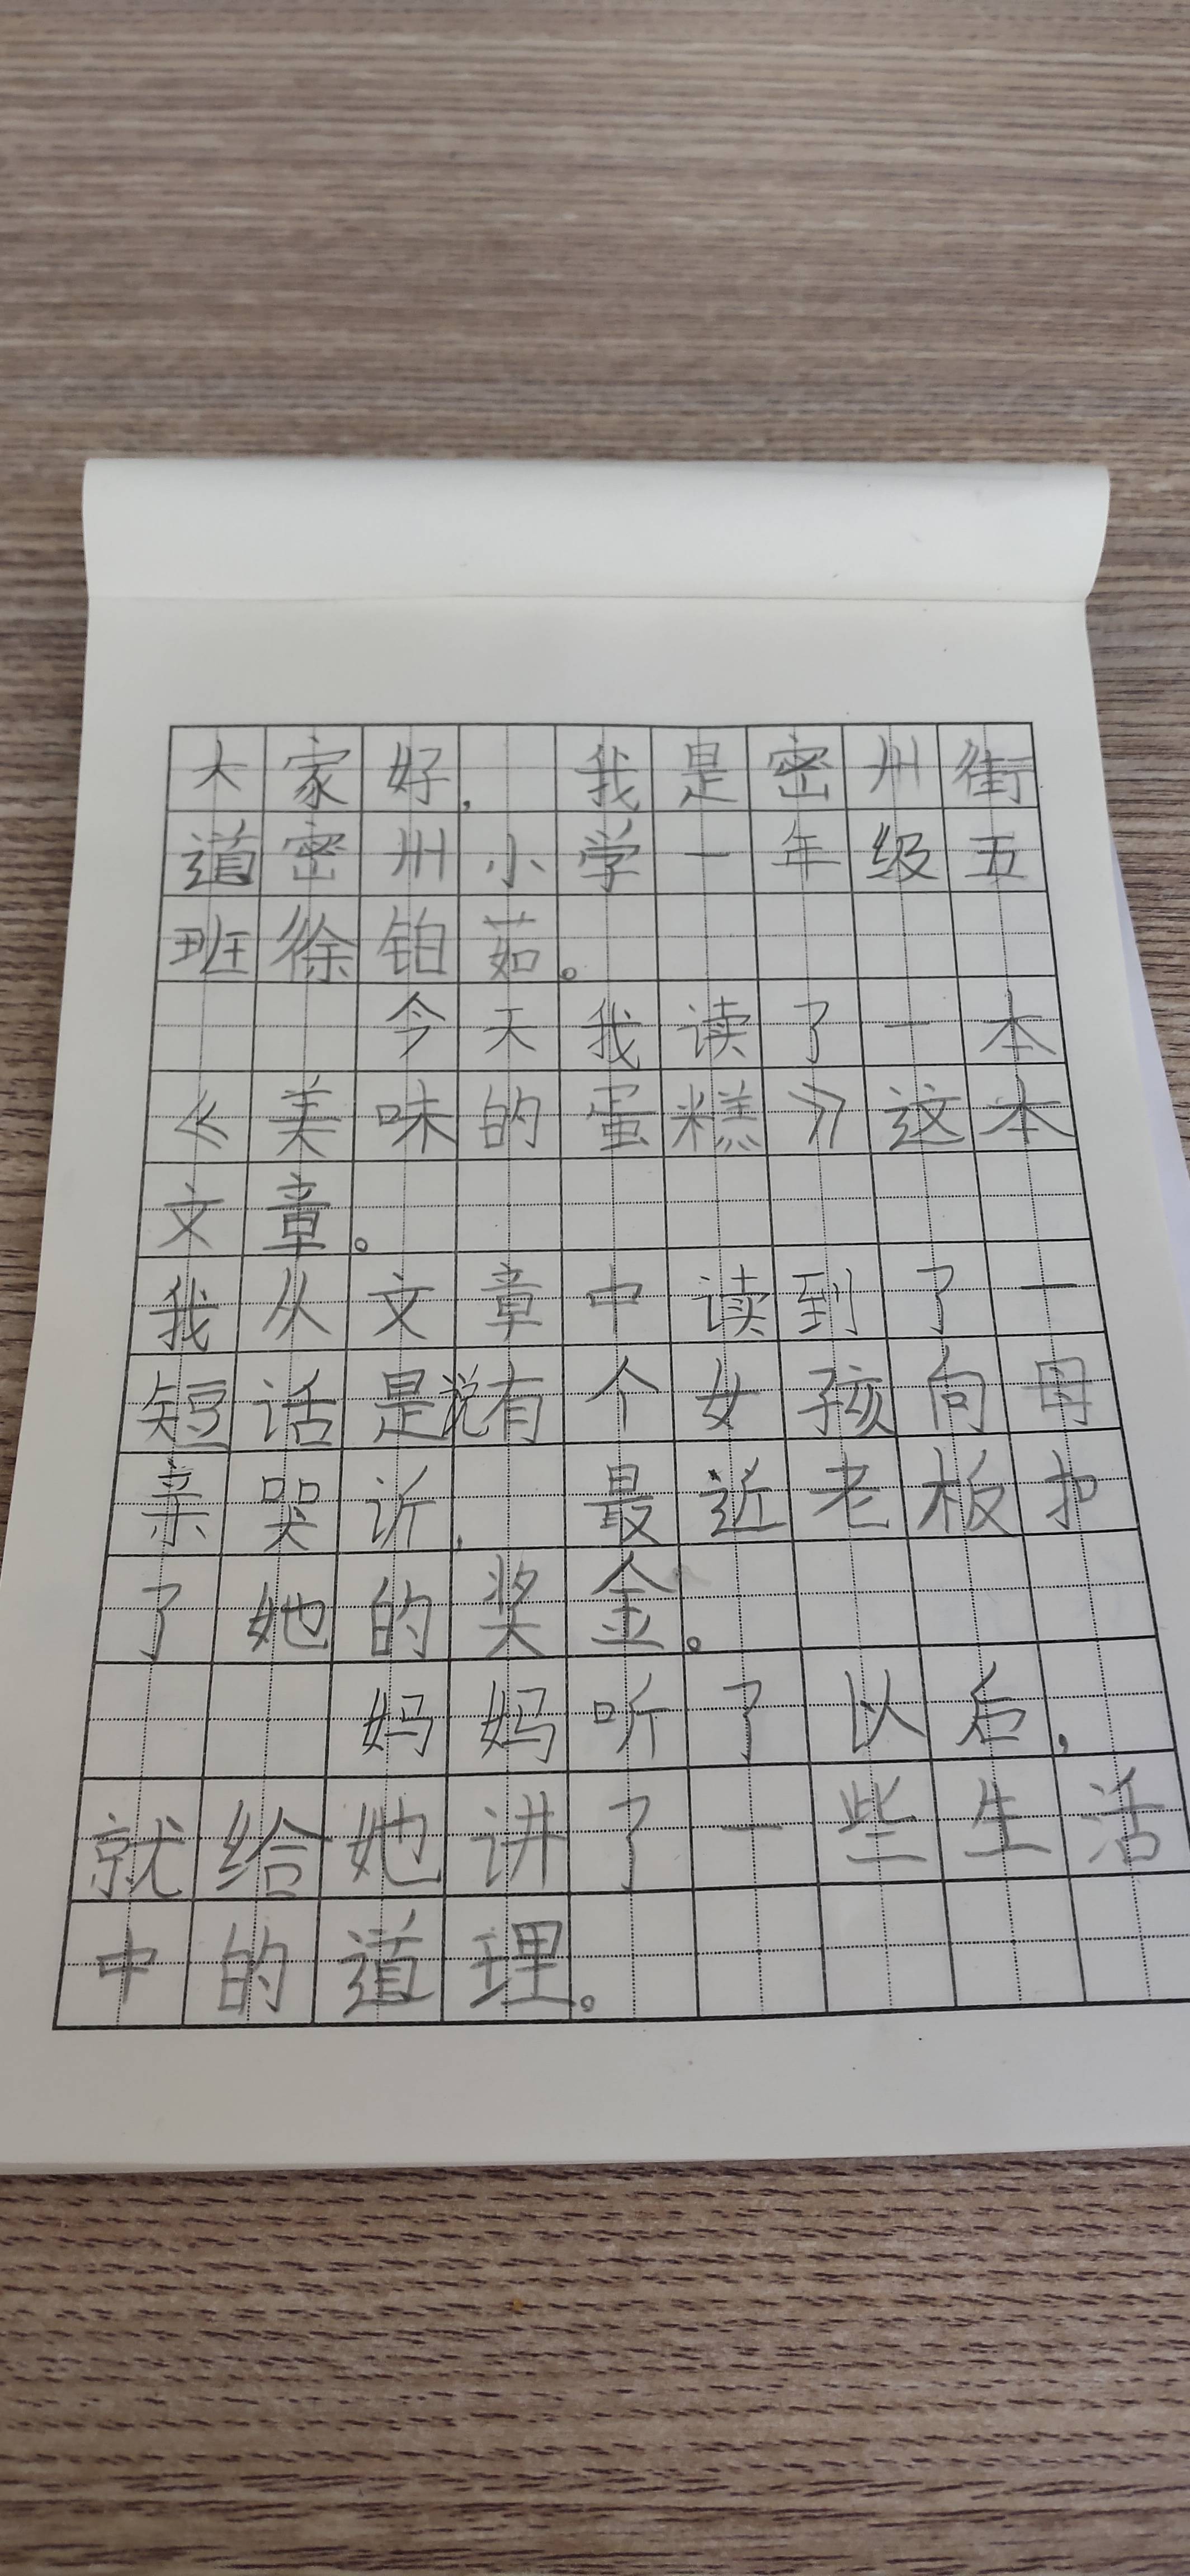 大家好，我是密州街
道密州小学一年级五
班徐铂茹。
今天我读了一本
《美味的蛋糕》这本
文章。
我从文章中读到了一
短话是说有个女孩向母
亲哭诉，最近老板扣
了她的奖金。
妈妈听了以后，
就给她讲了一些生活
中的道理。